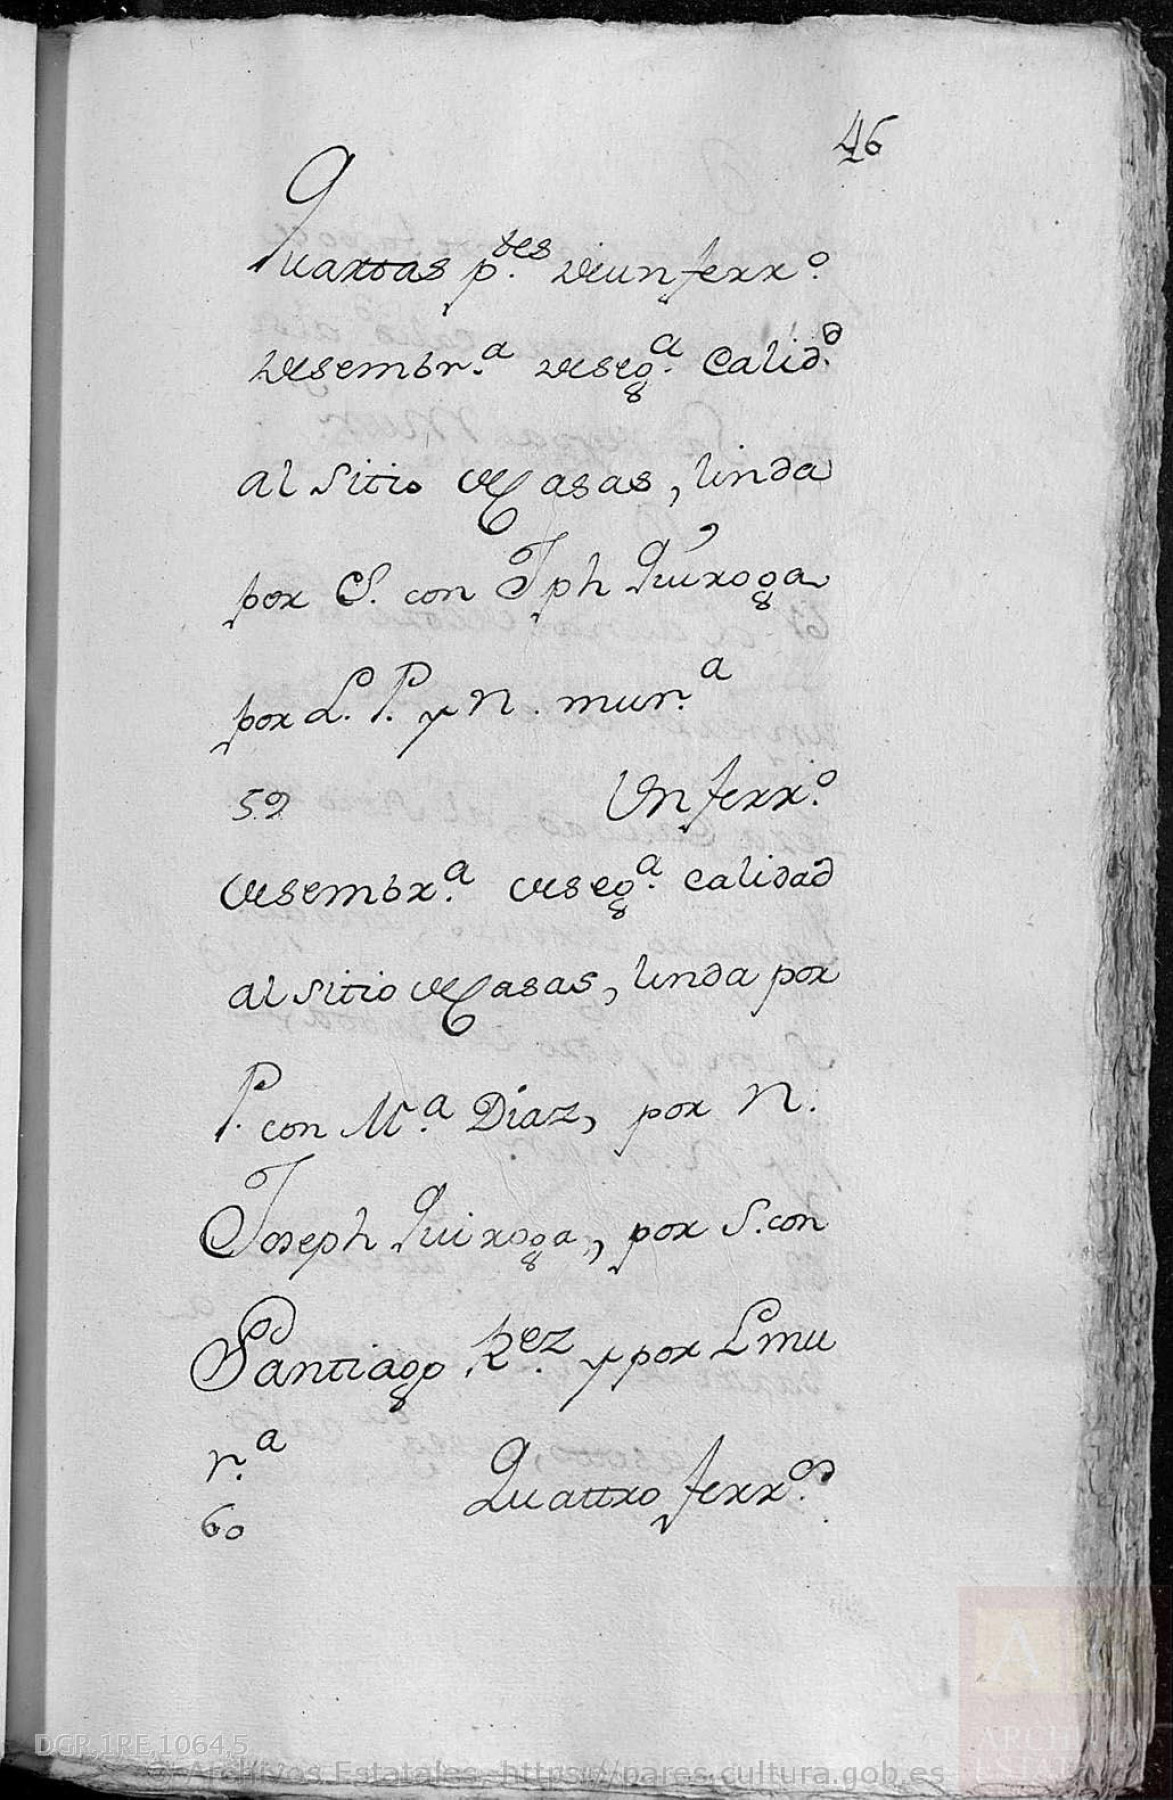 46
Quartas p.tes de un ferr.o
de sembr.a de seg.a Calid.d
al Sitio de Casas, linda
por S. con Jph Quiroga
por L. P. y N. mur.a
59 Un ferr.o
de sembr.a de seg.a calidad
al sitio de Casas, linda por
P. con M.a Diaz, por N.
Joseph Quiroga, por S. con
Santiago R.ez y por L mu
r.a Quattro ferr.os
60
DGR,1RE,1064,5
© Archivos Estatales, https://pares.cultura.gob.es